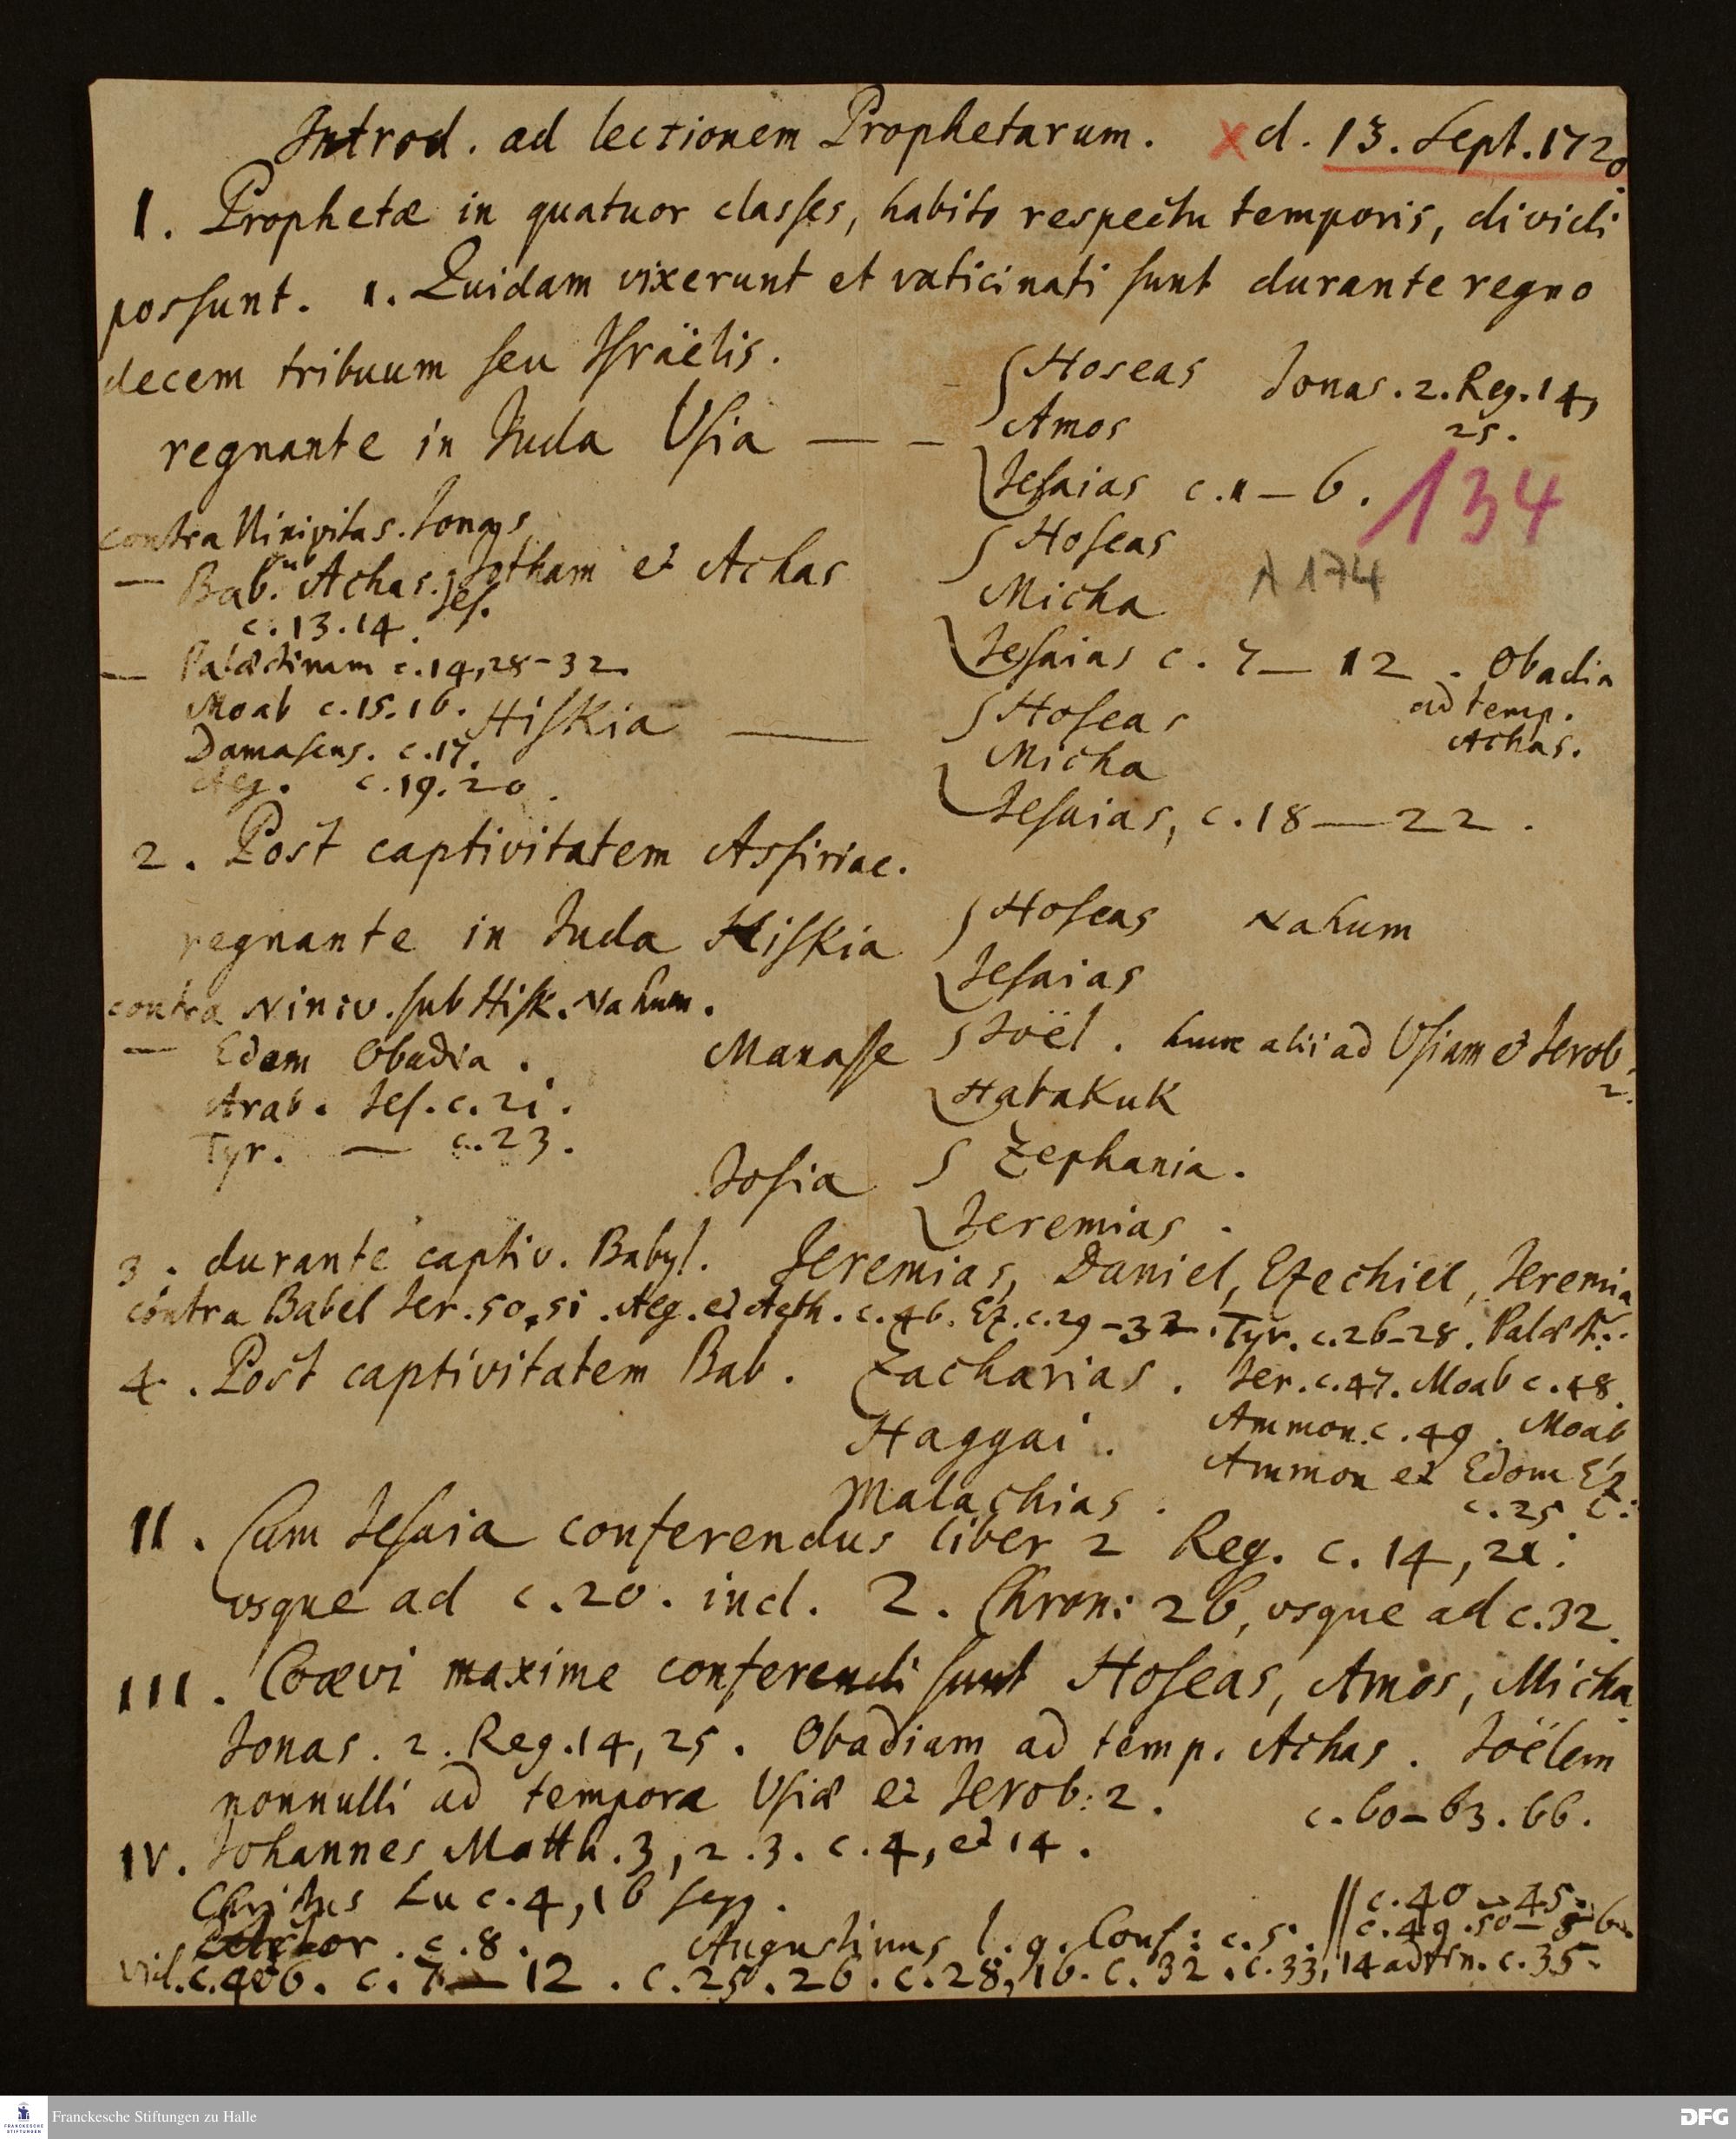 Introd. ad lectionem Prophetarum. x d. 13. Sept. 1720
I. Prophetæ in quatuor classes, habito respectu temporis, dividi
possunt. 1. Quidam vixerunt et vaticinati sunt durante regno
decem tribuum seu Israëlis.
regnante in Juda Usia — — Hoseas Jonas. 2. Reg. 14,
Amos 25.
Jesaias c. 1 — 6. 134
contra Ninivitas. Jonas
— Bab. Achas. Jes. Jotham et Achas Hoseas
Micha A 174
c. 13. 14.
— Palæstinam c. 14, 28-32 Jesaias c. 7 — 12 . Obadia
ad temp.
Achas.
Moab c. 15. 16. Hiskia — Hoseas
Damascus. c. 17. Micha
Aeg. c. 19. 20. Jesaias, c. 18 — 22.
2. Post captivitatem Assiriac.
regnante in Juda Hiskia Hoseas Nahum
Jesaias
contra Niniv. sub Hisk. Nahum.
— Edom Obadia. Manasse Joël. hunc alii ad Usiam et Jerob.
2.
Arab. Jes. c. 21. Habakuk
Tyr. — c. 23.
Josia Zephania.
Jeremias.
3. durante captiv. Babyl. Jeremias, Daniel, Ezechiel, Jeremia
contra Babel Jer. 50, 51. Aeg. et Aeth. c. 46. Ez. c. 29-32. Tyr. c. 26-28. Palæst.
4. Post captivitatem Bab. Zacharias. Jer. c. 47. Moab c. 48.
Haggai. Ammon. c. 49. Moab
Malachias. Ammon et Edom Ez
c. 25
II. Cum Jesaia conferendus liber 2 Reg. c. 14, 21.
usque ad c. 20. incl. 2. Chron: 26, usque ad c. 32.
III. Coævi maxime conferendi sunt Hoseas, Amos, Micha
Jonas. 2. Reg. 14, 25. Obadiam ad temp. Achas. Joëlem
nonnulli ad tempora Usiæ et Jerob: 2.
c. 60-63. 66.
IV. Johannes Matth. 3, 2. 3. c. 4, et 14.
Christus Luc. 4, 16 seqq.
c. 40 - 45.
c. 8. Augustinus l. 9. Conf: c. 5. c. 49. 50
vid. c. 6. c. 7 — 12. c. 25. 26. c. 28, 16. c. 32. c. 33, 14 ad fin. c. 35.
Franckesche Stiftungen zu Halle
FRANCKESCHE STIFTUNGEN
DFG